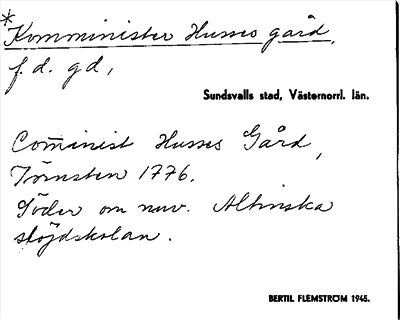 *
Komminister Husses gård,
f. d. gd,
Sundsvalls stad, Västernorrl. län.
Com̄inist Husses Gård,
Törnsten 1776.
Söder om nuv. Altinska
slöjdskolan.
BERTIL FLEMSTRÖM 1945.